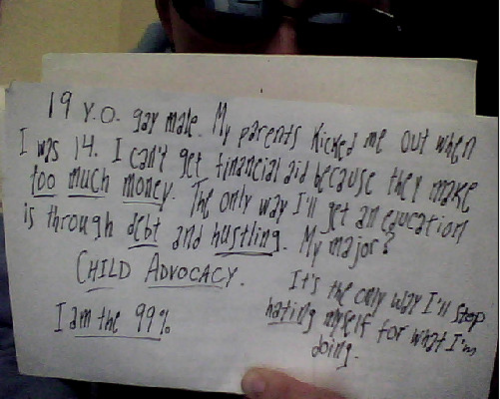 19 Y.O. gay male. My parents kicked me out when
I was 14. I can't get financial aid because they make
too much money. The only way I'll get an eaucation
is through debt and hustling. My major?
CHILD ADVOCACY.
It's the only way I'll stop
hating myself for what I'm
doing.
I am the 99%